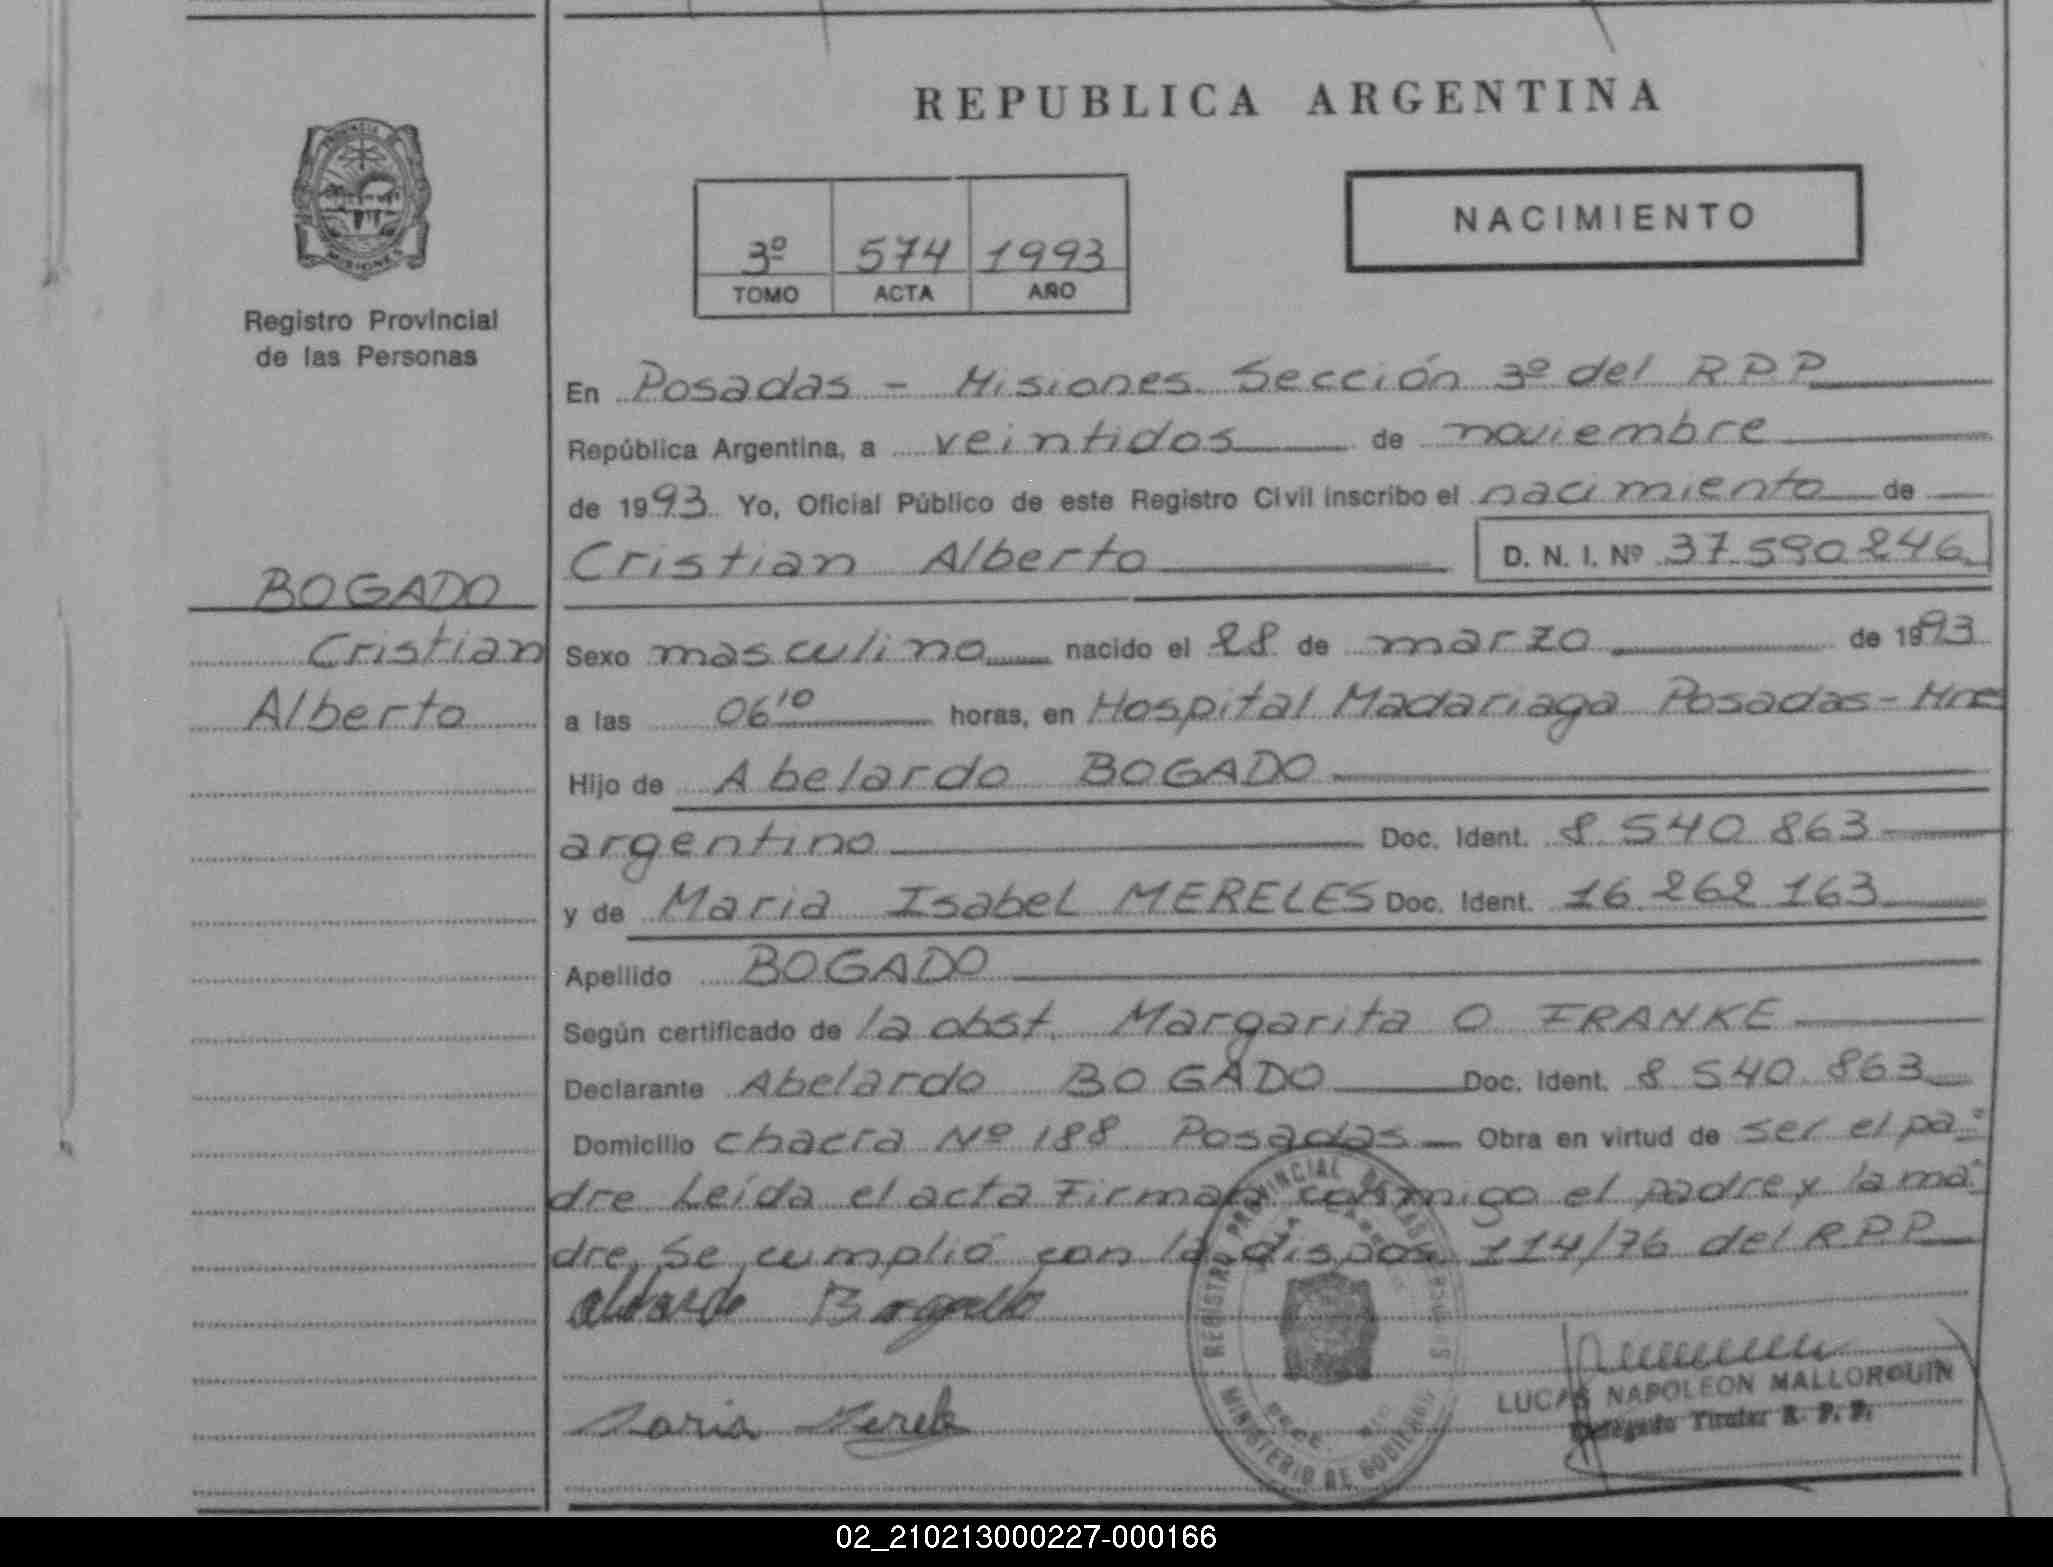 REPUBLICA ARGENTINA
NACIMIENTO
3º 574 1993
TOMO ACTA AÑO
Registro Provincial
de las Personas
BOGADO
Cristian
Alberto
En Posadas - Misiones Sección 3º del R.P.P
República Argentina, a veintidos de noviembre
de 1993 Yo, Oficial Público de este Registro Civil inscribo el nacimiento de
Cristian Alberto D. N. I. Nº 37.590.246
Sexo masculino nacido el 28 de marzo de 1993
a las 06¹⁰ horas, en Hospital Madariaga Posadas - Mnes
Hijo de Abelardo BOGADO
argentino Doc. Ident. 8 540 863
y de Maria Isabel MERELES Doc. Ident. 16 262 163
Apellido BOGADO
Según certificado de la obst. Margarita O FRANKE
Declarante Abelardo BOGADO Doc. Ident. 8 540 863
Domicilio chacra Nº 188 Posadas Obra en virtud de ser el pa-
dre Leída el acta Firman conmigo el padre y la ma-
dre, Se cumplió con la dispos 114/76 del R.P.P
Abelardo Bogado
Maria Merele
REGISTRO PROVINCIAL DE LAS PERSONAS
MINISTERIO DE GOBIERNO
LUCAS NAPOLEON MALLORQUIN
Delegado Titular R. P. P.
02_210213000227-000166